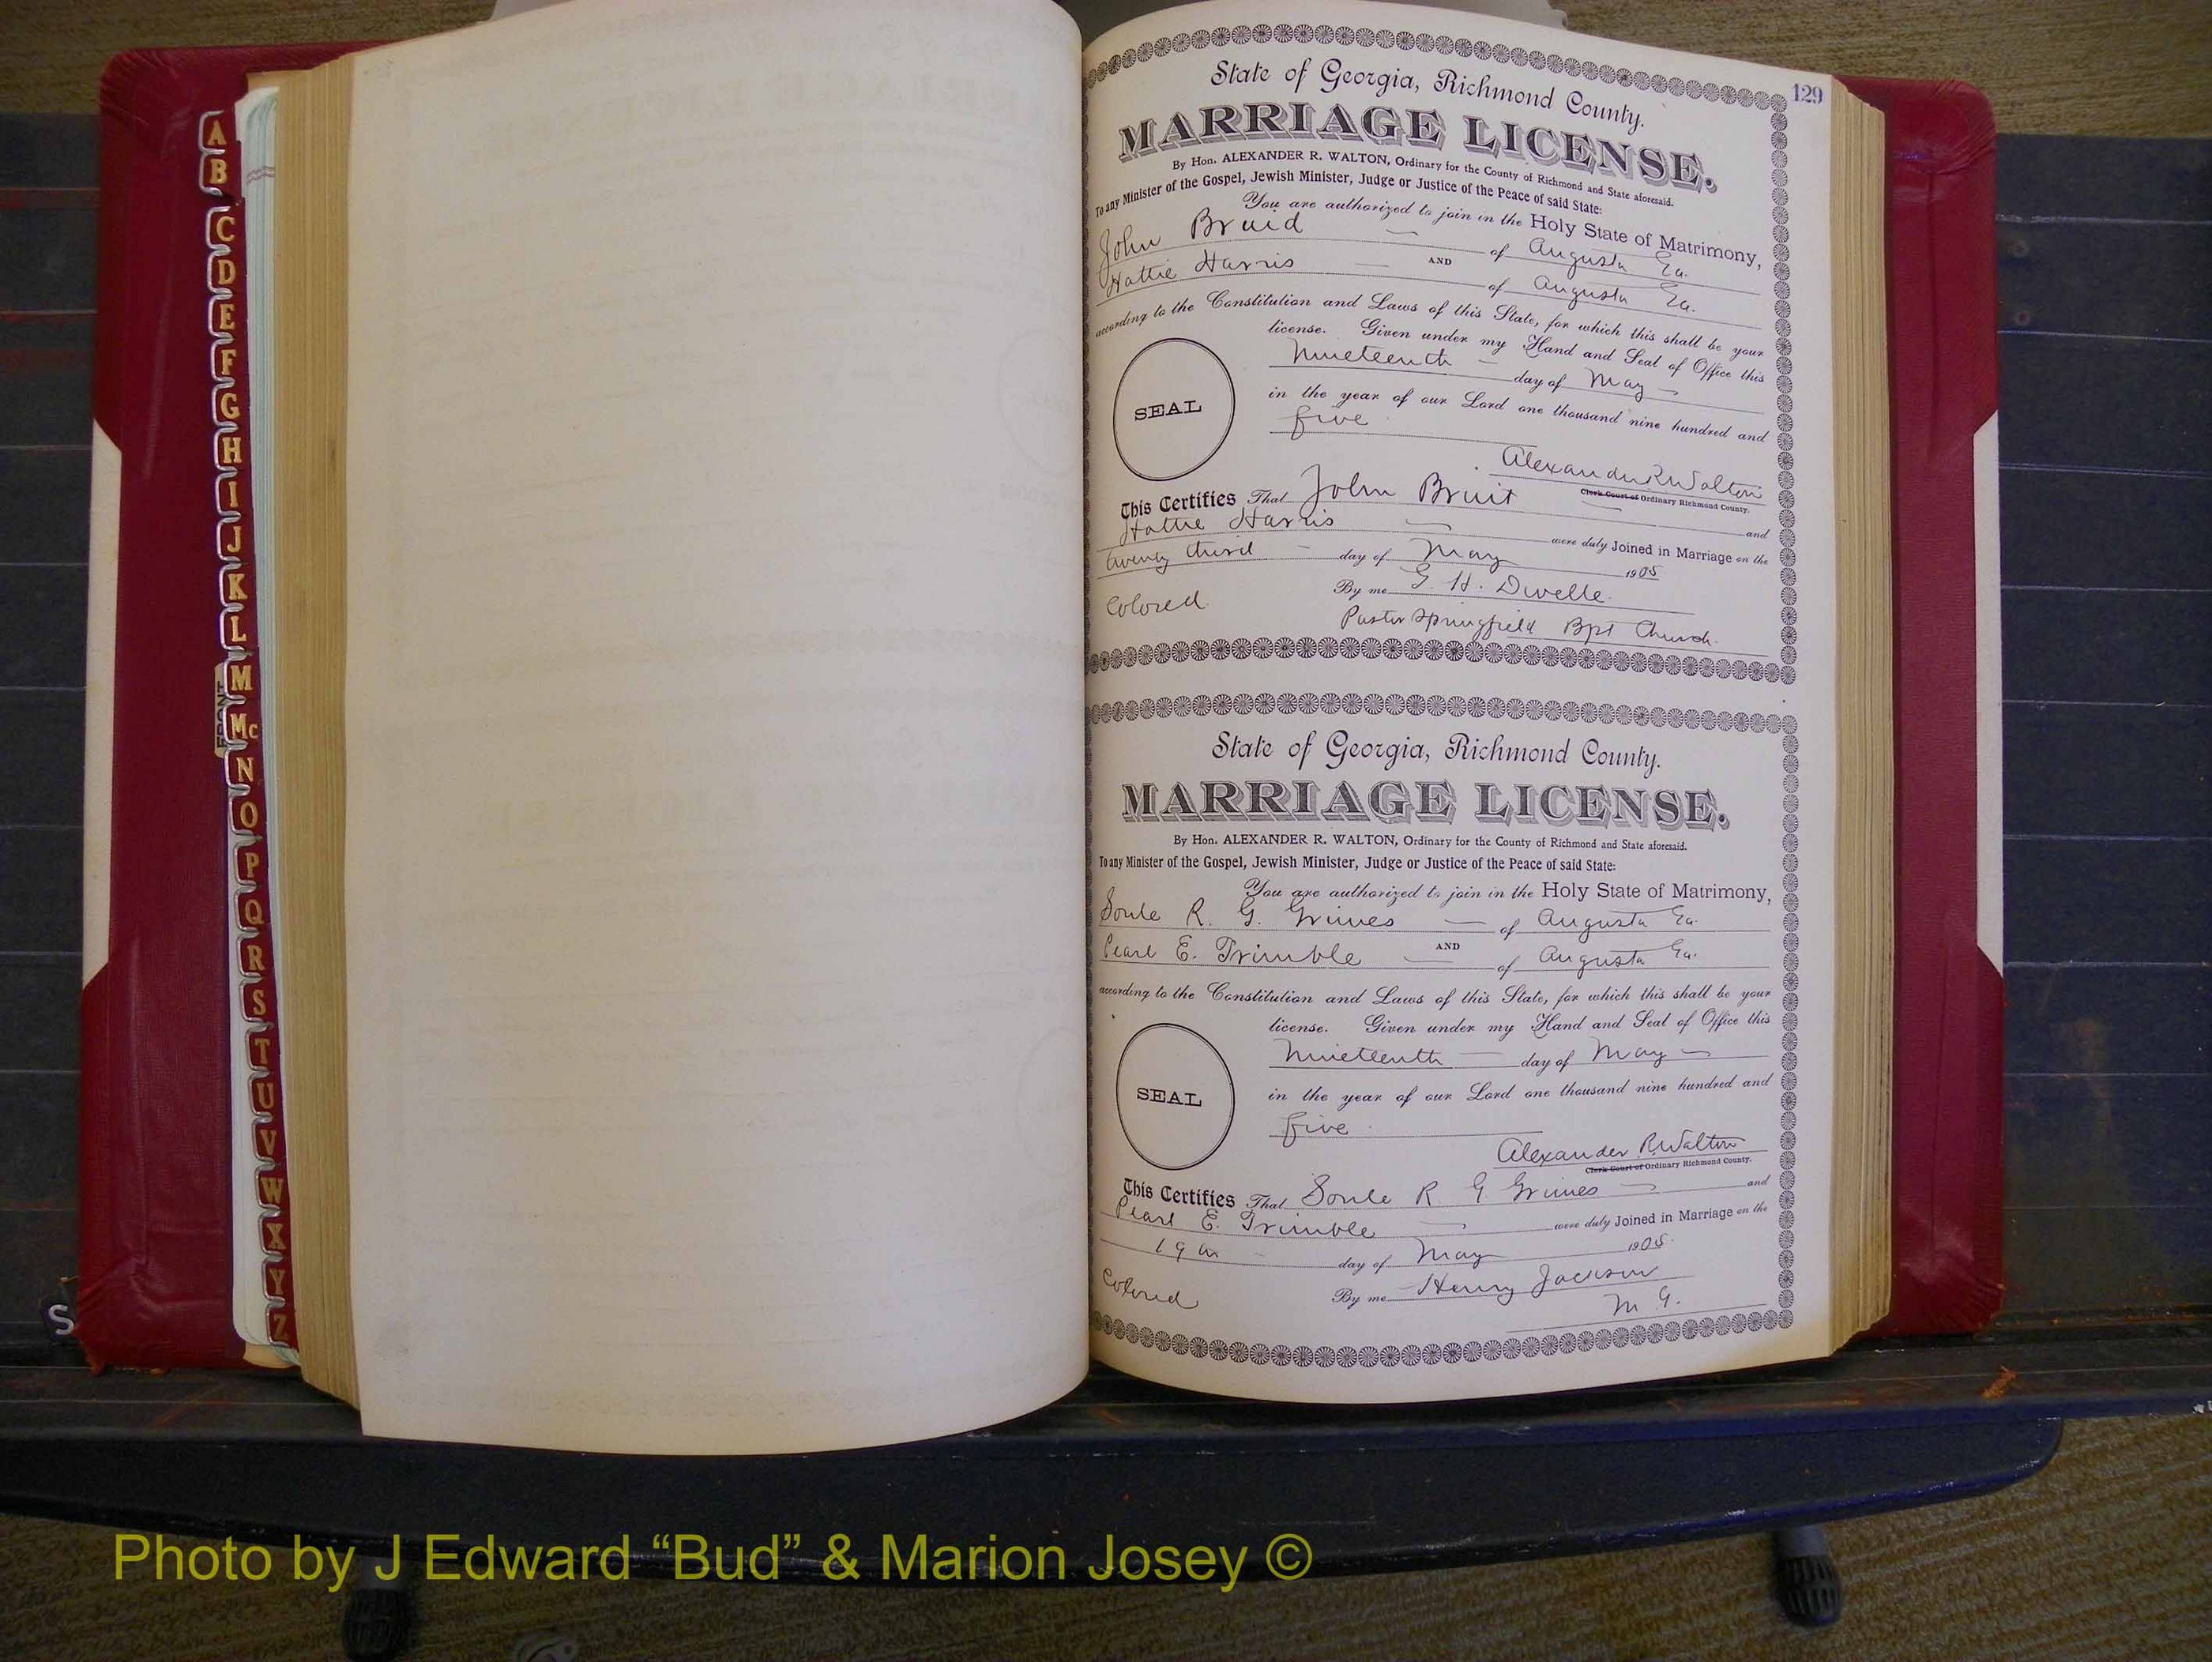 A
B
C
D
E
F
G
H
I
J
K
L
M
Mc
N
O
P
Q
R
S
T
U
V
W
X
Y
Z
S
129
State of Georgia, Richmond County.
MARRIAGE LICENSE.
By Hon. ALEXANDER R. WALTON, Ordinary for the County of Richmond and State aforesaid.
To any Minister of the Gospel, Jewish Minister, Judge or Justice of the Peace of said State:
You are authorized to join in the Holy State of Matrimony,
John Bruid of Augusta Ga.
AND
Hattie Harris of Augusta Ga.
according to the Constitution and Laws of this State, for which this shall be your
license. Given under my Hand and Seal of Office this
Nineteenth day of May
SEAL
in the year of our Lord one thousand nine hundred and
five
Alexander R Walton
Clerk Court of Ordinary Richmond County.
This Certifies That John Bruit and
Hattie Harris were duly Joined in Marriage on the
twenty third day of May 1905
By me G. H. Dwelle
Colored
Pastor Springfield Bpt Church.
State of Georgia, Richmond County.
MARRIAGE LICENSE.
By Hon. ALEXANDER R. WALTON, Ordinary for the County of Richmond and State aforesaid.
To any Minister of the Gospel, Jewish Minister, Judge or Justice of the Peace of said State:
You are authorized to join in the Holy State of Matrimony,
Soule R. G. Grimes of Augusta Ga.
AND
Pearl E. Trimble of Augusta Ga.
according to the Constitution and Laws of this State, for which this shall be your
license. Given under my Hand and Seal of Office this
Nineteenth day of May
SEAL
in the year of our Lord one thousand nine hundred and
five
Alexander R. Walton
Clerk Court of Ordinary Richmond County.
This Certifies That Soule R G. Grimes and
Pearl E. Trimble were duly Joined in Marriage on the
19th day of May 1905.
By me Henry Jackson
Colored
M G.
Photo by J Edward “Bud” & Marion Josey ©